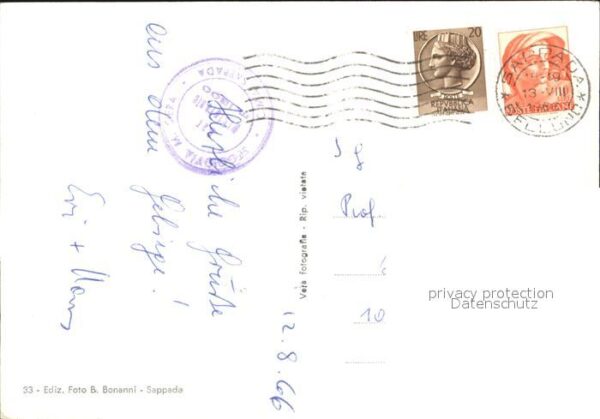 Herzliche Grüße
aus dem
Gebirge!
Evi + Hans
12.8.66
Prof
10
LIRE 20
SAPPADA
13 VIII
BELLUNO
SEGGIOVIA M.
SAPPADA
Vera fotografia - Rip. vietata
33 - Ediz. Foto B. Bonanni - Sappada
privacy protection
Datenschutz